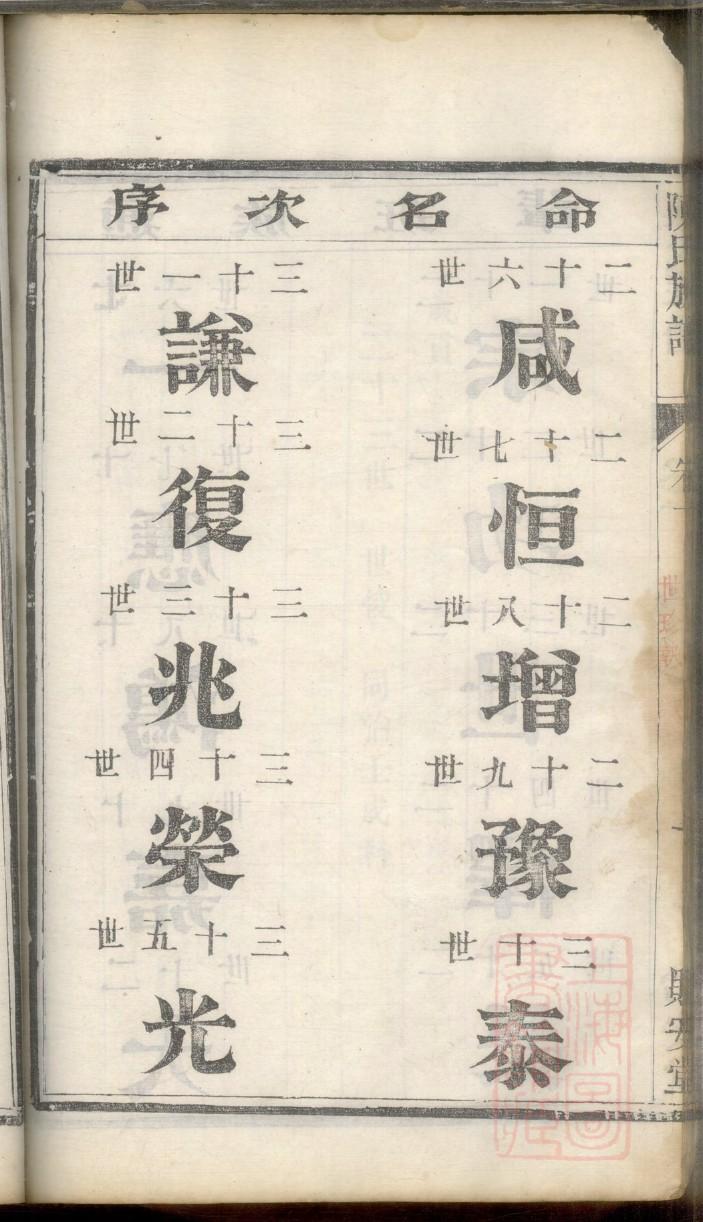 命名次序
二十六世
咸
二十七世
恒
二十八世
增
二十九世
豫
三十世
泰
三十一世
謙
三十二世
復
三十三世
兆
三十四世
榮
三十五世
光
陳氏族譜
卷一